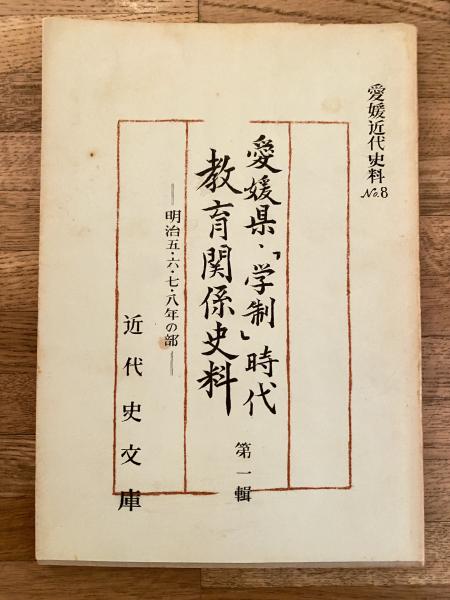 愛媛近代史料 No.8
愛媛県・「学制」時代
教育関係史料
第一輯
明治五・六・七・八年の部
近代史文庫